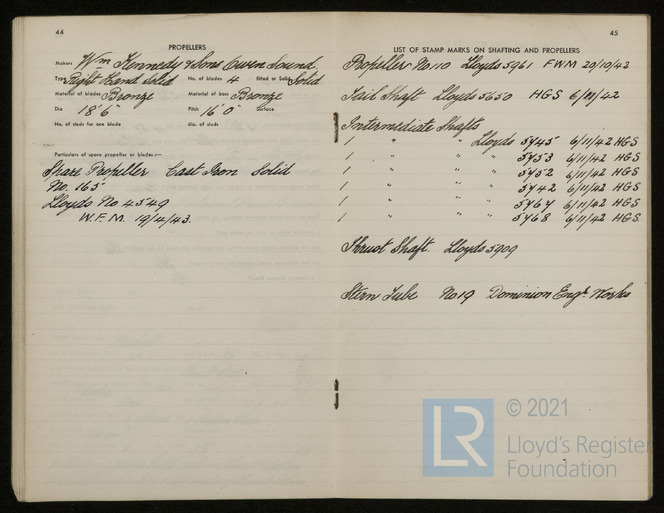 44
PROPELLERS
Makers Wm Kennedy & Sons Owen Sound
Type Right Hand Solid No. of blades 4 fitted or Solid Solid
Material of blades Bronze Material of boss Bronze
Dia 18'6" Pitch 16'0" Surface
No. of studs for one blade dia. of studs
Particulars of spare propeller or blades:—
Spare Propeller Cast Iron Solid
No. 165
Lloyds No 4549
W.F.M. 19/4/43.
45
LIST OF STAMP MARKS ON SHAFTING AND PROPELLERS
Propeller No 110 Lloyds 5961 FWM 20/10/42
Tail Shaft Lloyds 5650 HGS 6/11/42
Intermediate Shafts
1 " " Lloyds 5745 6/11/42 HGS
1 " " " 5753 6/11/42 HGS
1 " " " 5752 6/11/42 HGS
1 " " " 5742 6/11/42 HGS
1 " " " 5767 6/11/42 HGS
1 " " " 5768 6/11/42 HGS
Thrust Shaft. Lloyds 5909
Stern Tube No 19 Dominion Engr. Works
LR
© 2021
Lloyd's Register
Foundation